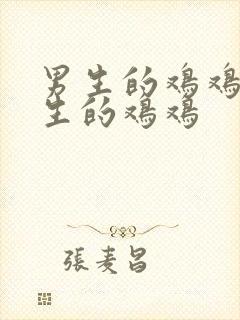 男生的鸡鸡
生的鸡鸡
張麦昌